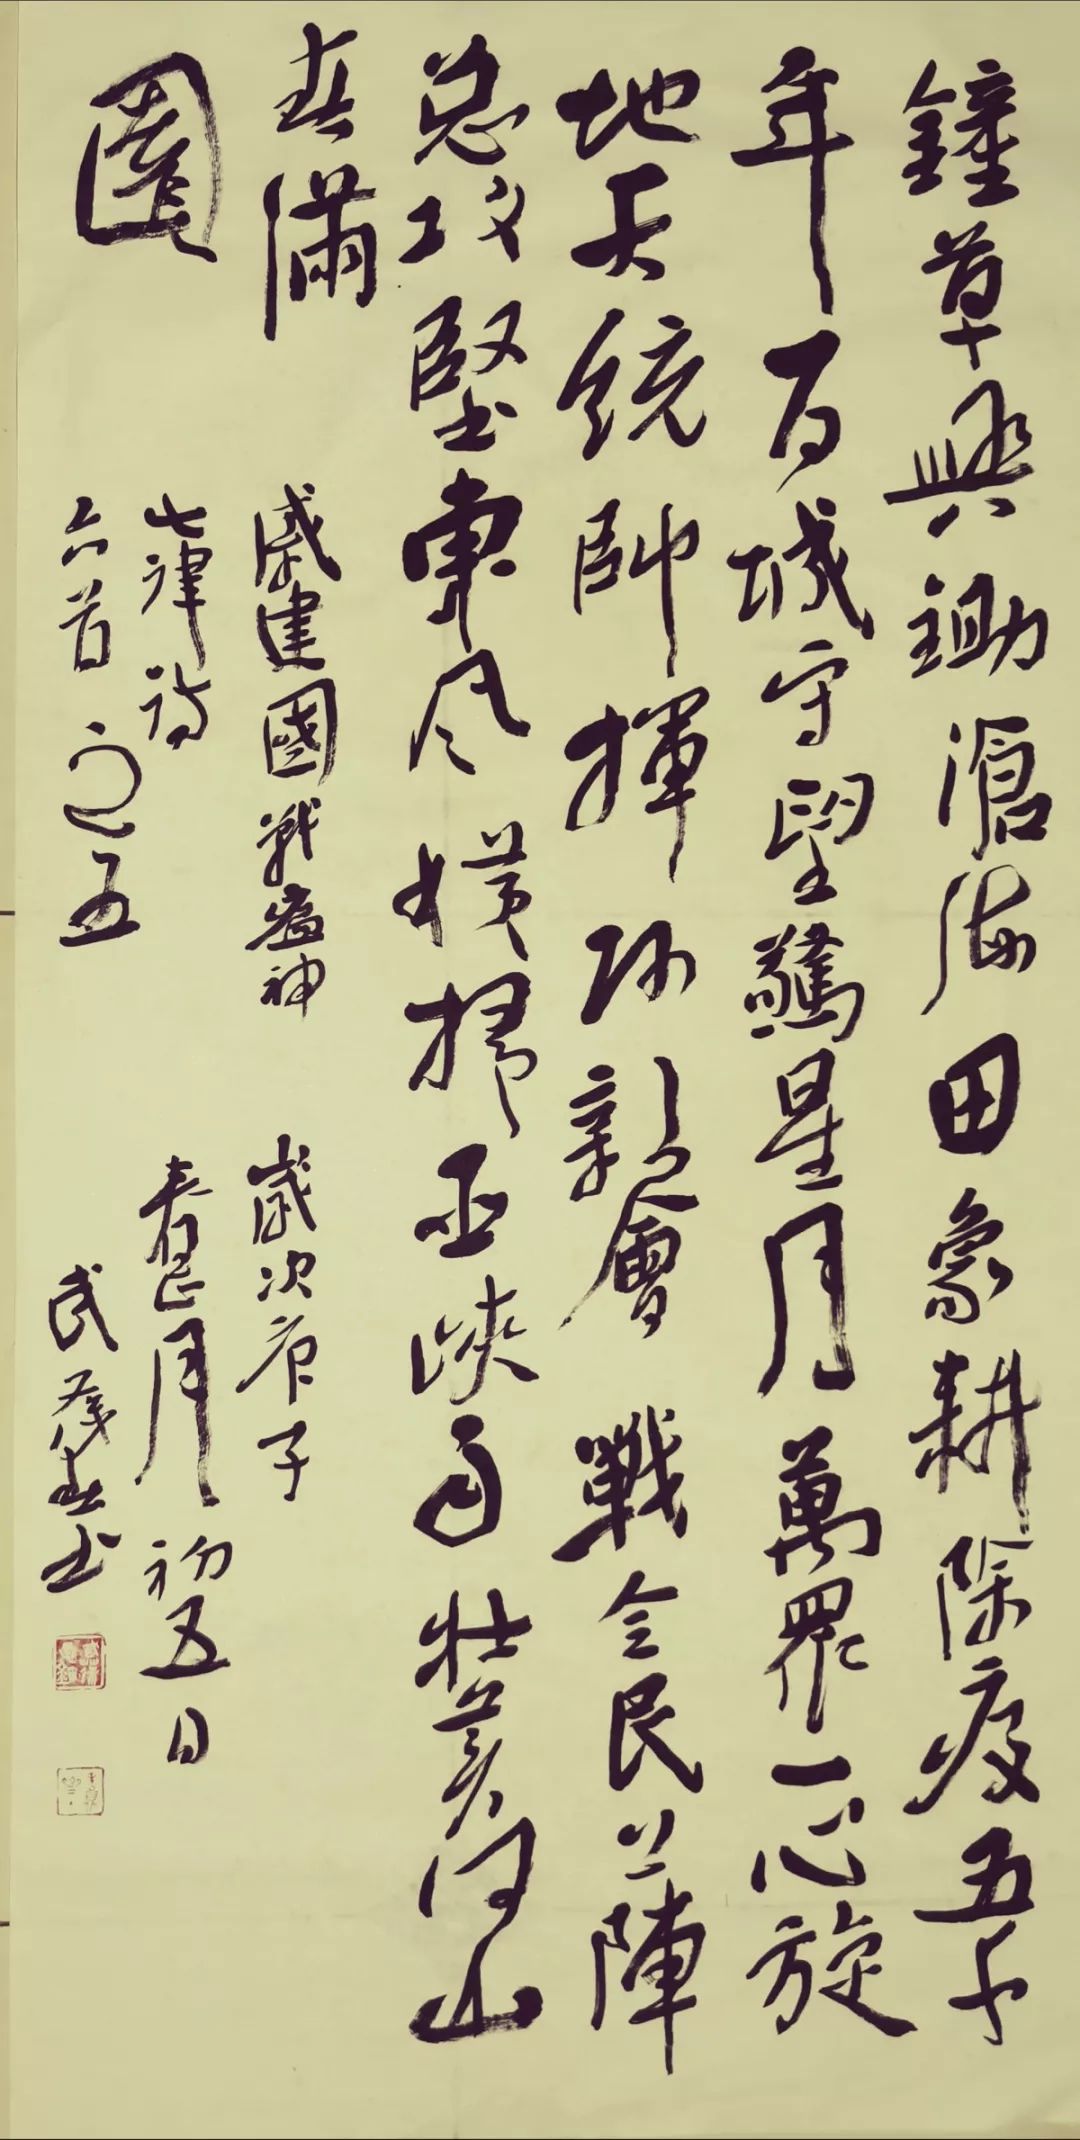 鍾草興鋤滄海田象耕除疫五千
年百城守望驚星月萬眾一心旋
地天統帥揮師親會戰全民上陣
总攻堅東风横掃巫峽雨壯美河山
春滿
園
戚建國戰瘟神
七律詩
六首之五
歲次庚子
春正月初五日
武书